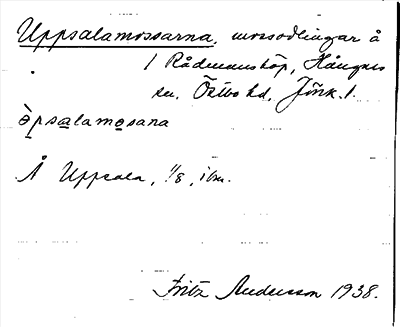 Uppsalamossarna, mossodlingar å
1 Rådmanshöp, Hångers
sn, Östbo hd, Jönk. l.
òpsalamosana
Å Uppsala, 1/8, ibm.
Fritz Andersson 1938.